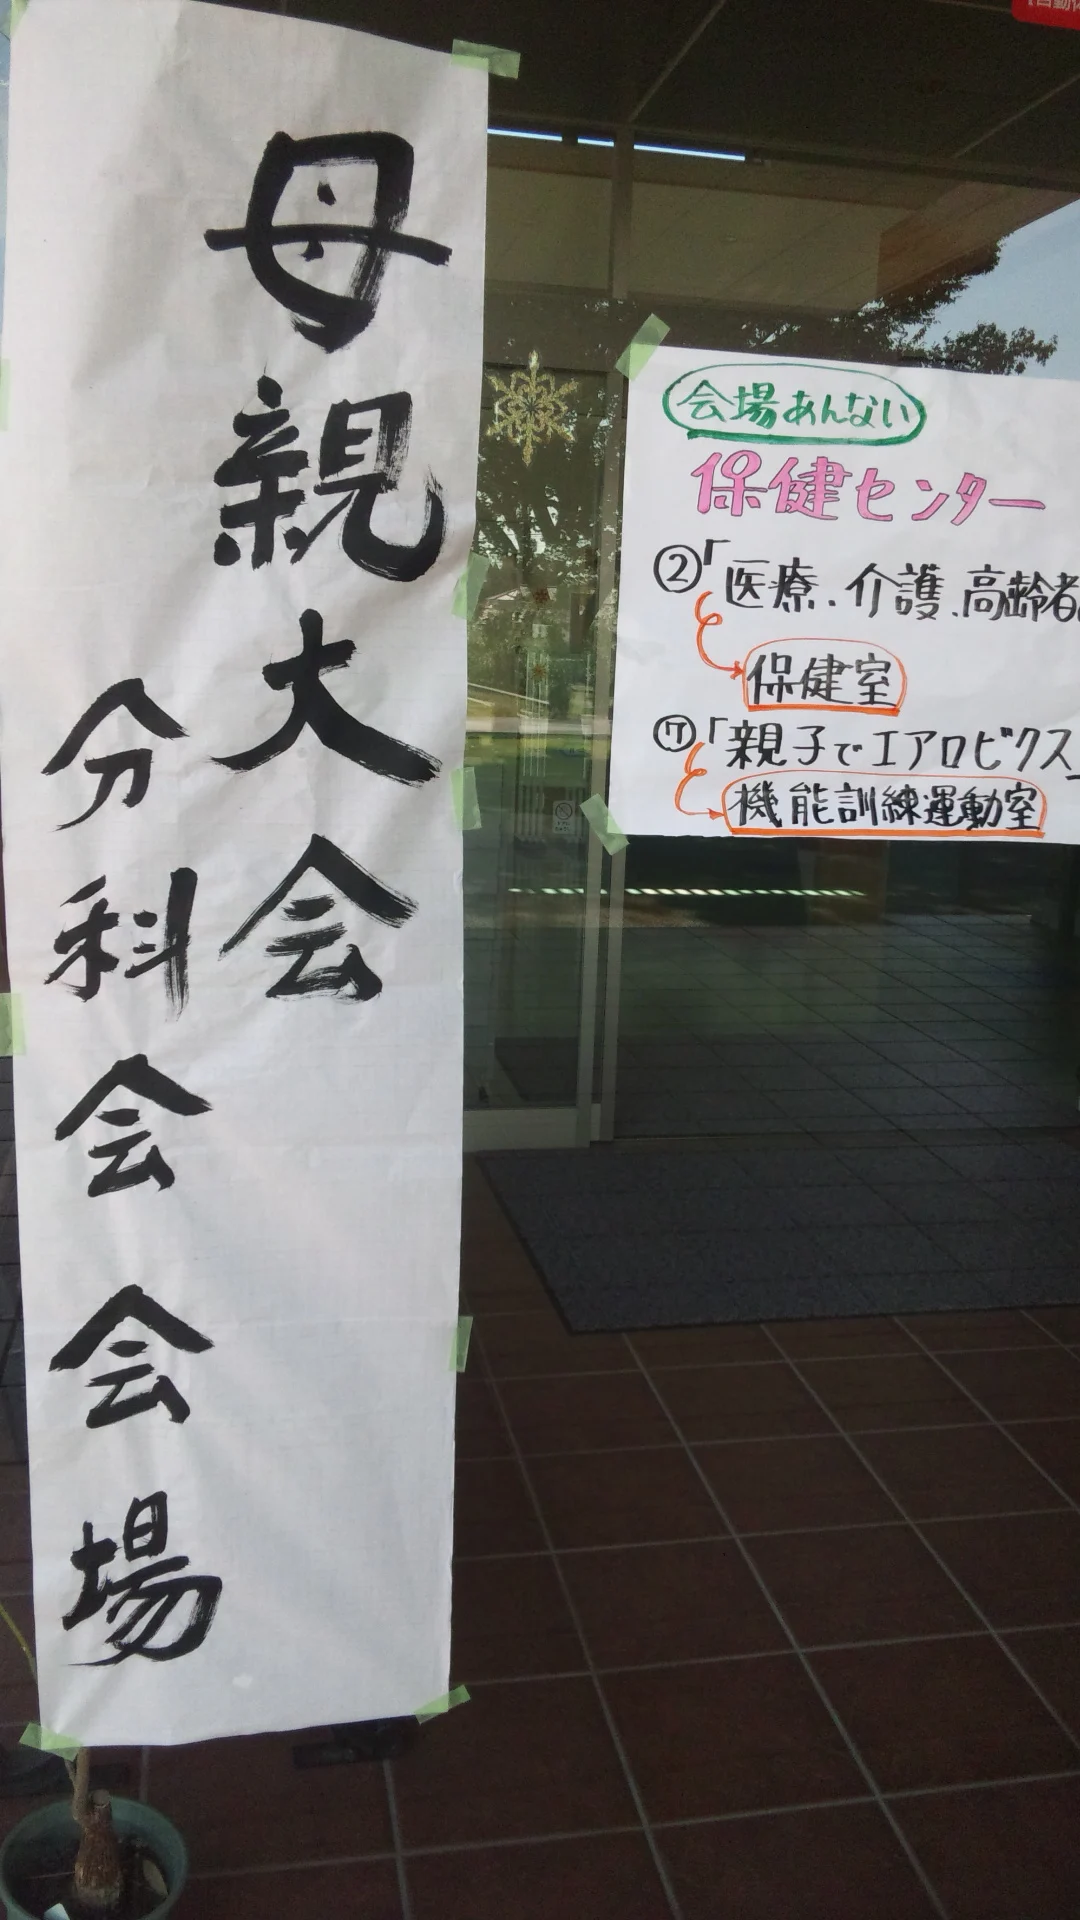 母親大会
分科会会場
会場あんない
保健センター
②「医療、介護、高齢者
保健室
⑦「親子でエアロビクス」
機能訓練運動室